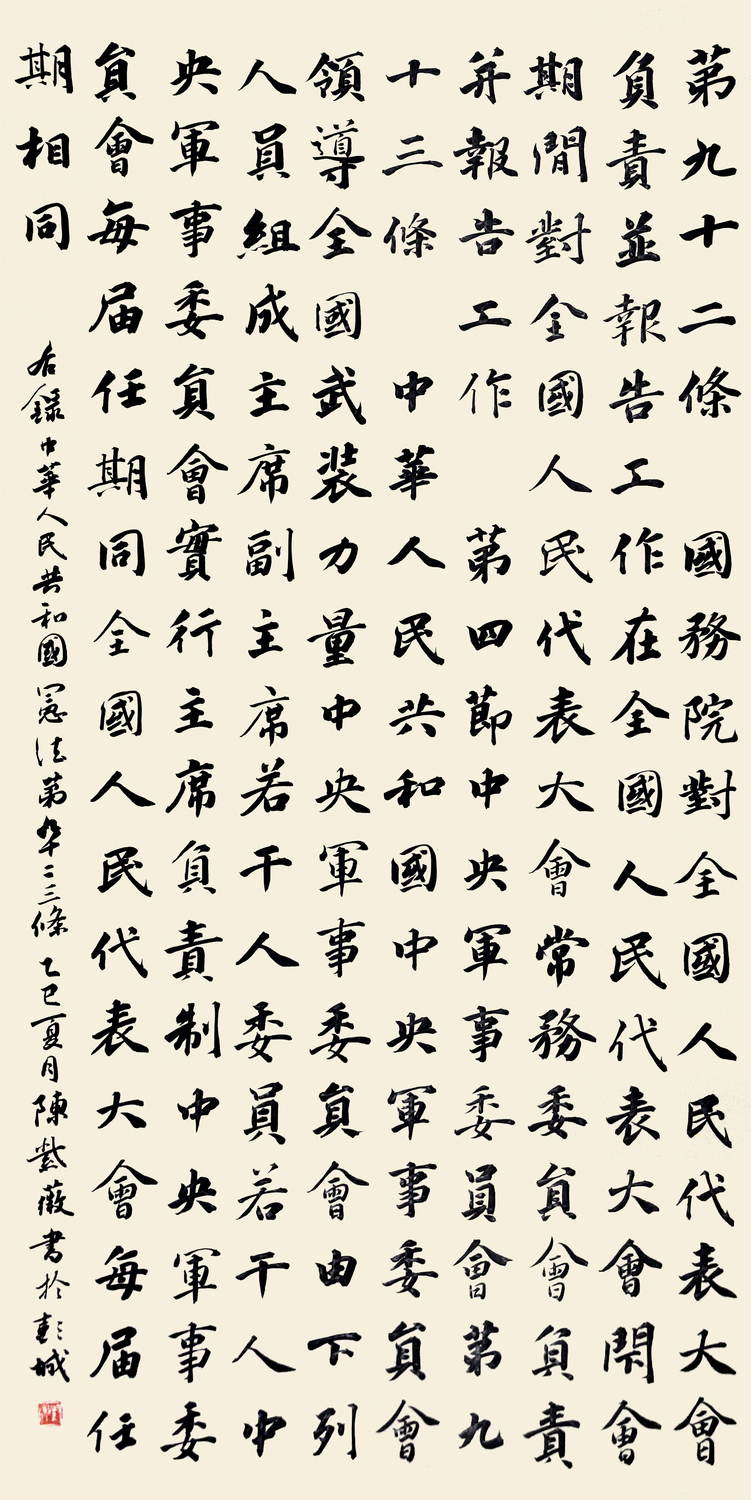 第九十二條 國務院對全國人民代表大會
負責並報告工作在全國人民代表大會閉會
期間對全國人民代表大會常務委員會負責
并報告工作 第四節中央軍事委員會第九
十三條 中華人民共和國中央軍事委員會
領導全國武装力量中央軍事委員會由下列
人員組成主席副主席若干人委員若干人中
央軍事委員會實行主席負責制中央軍事委
員會每届任期同全國人民代表大會每届任
期相同
右錄中華人民共和國憲法第九十二三條 乙巳夏月陳紫薇書於彭城